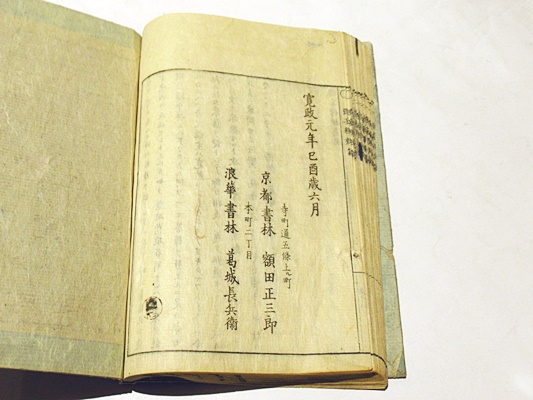 寛政元年己酉歳六月
寺町通五條上町
京都書林 額田正三郎
本町二丁目
浪華書林 葛城長兵衛